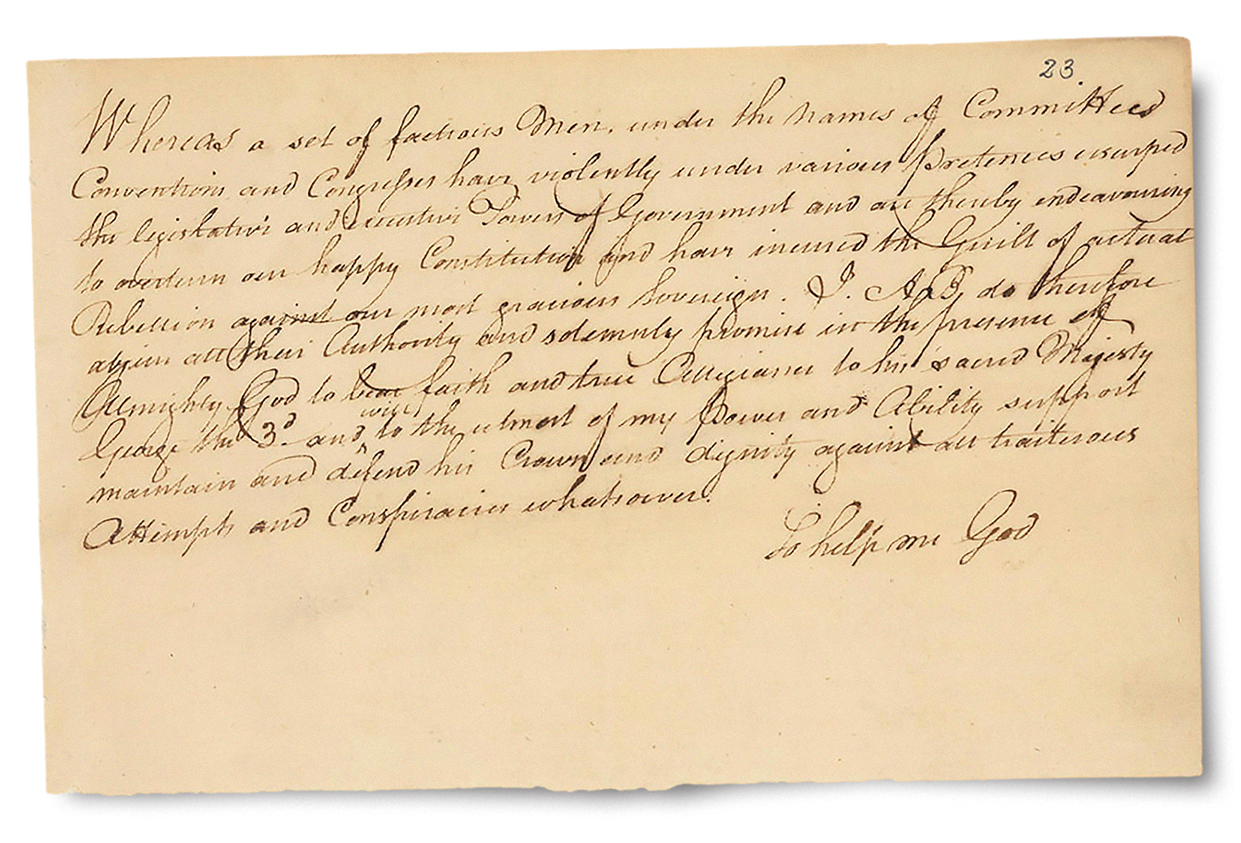 23
Whereas a set of factious Men, under the Names of Committees
Conventions and Congresses have violently under various Pretences usurped
the legislative and executive Powers of Government and are thereby endeavouring
to overturn our happy Constitution and have incured the Guilt of actual
Rebellion against our most gracious Sovereign. I. A.B. do therefore
abjure all their Authority and solemnly promise in the presence of
Almighty God to bear faith and true Allegiance to his sacred Majesty
George the 3d. and will to the utmost of my Power and Ability support
maintain and defend his Crown and dignity against all traiterous
Attempts and Conspiracies whatsoever.
So help me God